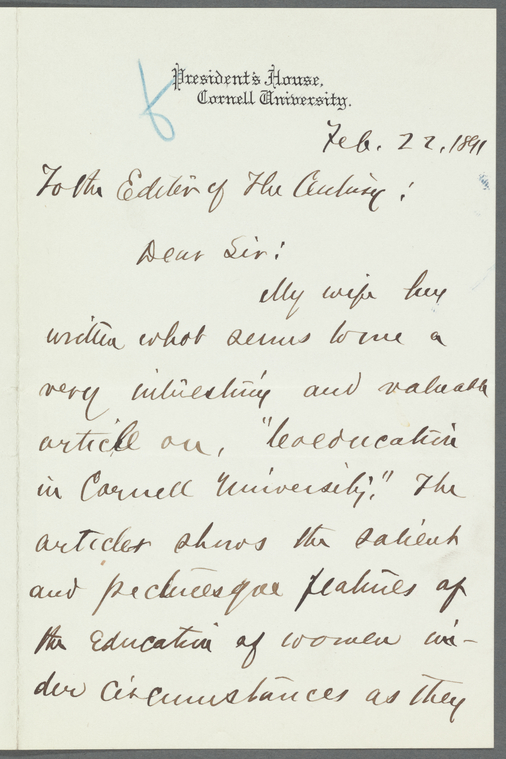 President's House,
Cornell University.
Feb. 22, 1891
To the Editor of The Century:
Dear Sir:
My wife has
written what seems to me a
very interesting and valuable
article on, "Coeducation
in Cornell University." The
articles shows the salient
and picturesque features of
the Education of women un-
der circumstances as they